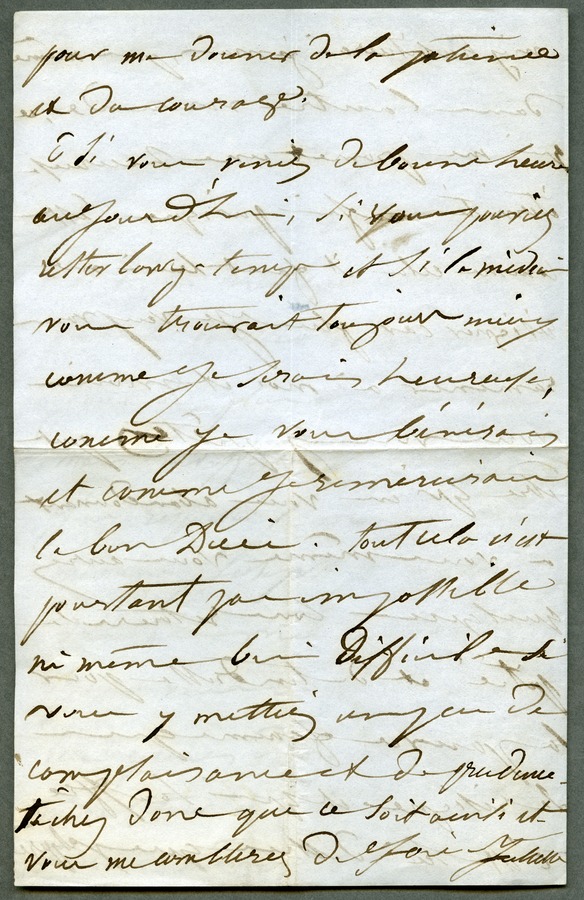 pour me donner de la patience
et du courage.
O si vous veniez de bonne heure
aujourd'hui, si vous pouviez
rester longtemps et si le médecin
vous trouvait toujours mieux
comme je serais heureuse,
comme je vous bénirais
et comme je remercierais
le bon Dieu. tout cela n'est
pourtant pas impossible
ni même bien difficile si
vous y mettiez un peu de
complaisance et de prudence.
tâchez donc que ce soit ainsi et
vous me comblerez de joie Juliette